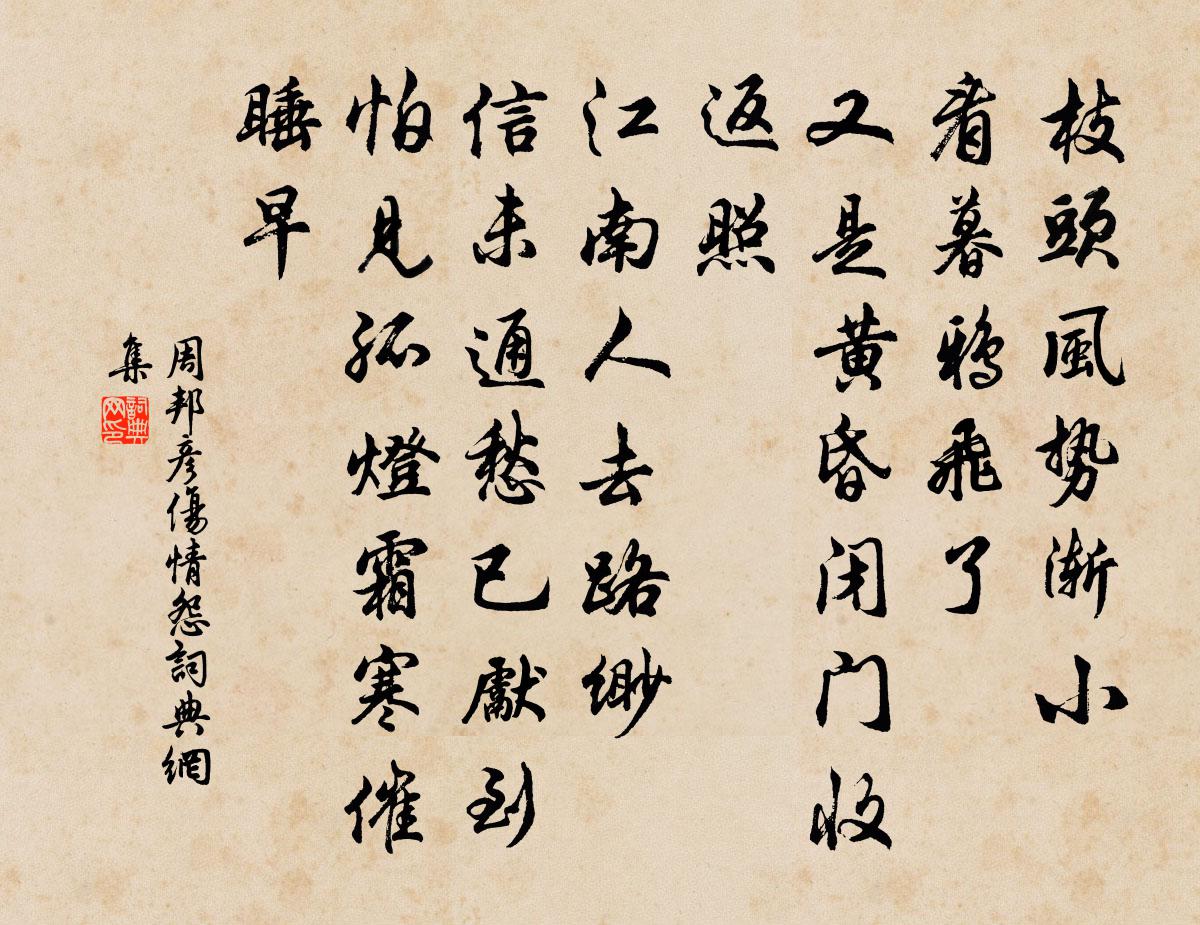 枝頭風势漸小
看暮鴉飛了
又是黄昏闭门收
返照
江南人去路緲
信未通愁已獻到
怕見孤燈霜寒催
睡早
周邦彦傷情怨詞典網
集
詞典网印